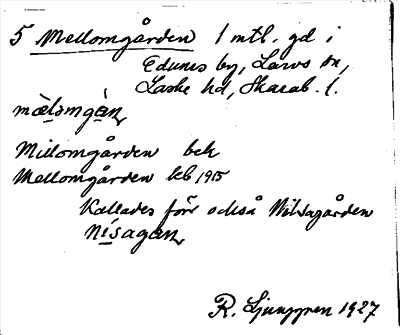 5 Mellomgården 1 mtl. gd i
Edunes by, Larvs sn,
Laske hd, Skarab. l.
mèlomgà̀n
Mellomgården bek
Mellomgården kb 1915
Kallades förr också Nilsagården
nísagan
R. Ljunggren 1927